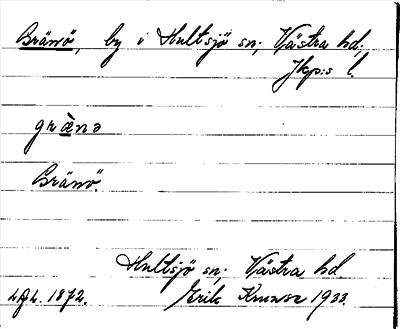 Bränö, by i Hultsjö sn; Västra hd;
Jkp:s l.
græ̀nə
Bränö.
Hultsjö sn; Västra hd
1872. Erik Kruuse 1933.